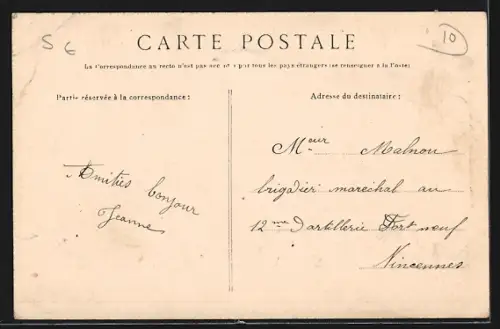 S 6
10
CARTE POSTALE
La Correspondance au recto n'est pas par tous les pays étrangers (se renseigner à la Poste)
Partie réservée à la correspondance :
Amitiés bonjour
Jeanne
Adresse du destinataire :
Mœur Malnou
brigadier maréchal au
12me d'artillerie Fort neuf
Vincennes